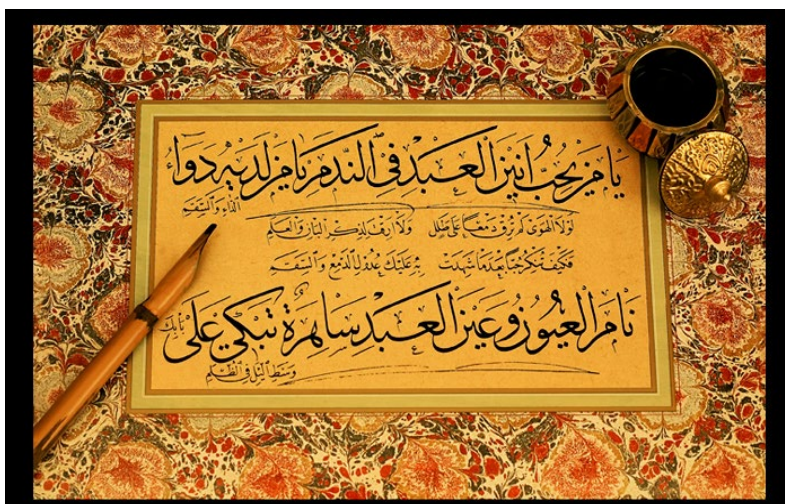 يَا مَنْ يُحِبُّ اَنِينَ الْعَبْدِ فِي النَّدَمِ يَا مَنْ لَدَيْهِ دَوَاءُ
الدَّاءِ وَالسَّقَمِ
لَوْلَا الْهَوَى لَمْ تُرِقْ دَمْعًا عَلَى طَلَلٍ وَلَا اَرِقْتَ لِذِكْرِ الْبَانِ وَالْعَلَمِ
فَكَيْفَ تُنْكِرُ حُبًّا بَعْدَ مَا شَهِدَتْ بِهِ عَلَيْكَ عُدُولُ الدَّمْعِ وَالسَّقَمِ
نَامَ الْعُيُونُ وَعَيْنُ الْعَبْدِ سَاهِرَةٌ تَبْكِي عَلَى بَابِكَ
وَسَطَ اللَّيْلِ فِي الظُّلَمِ